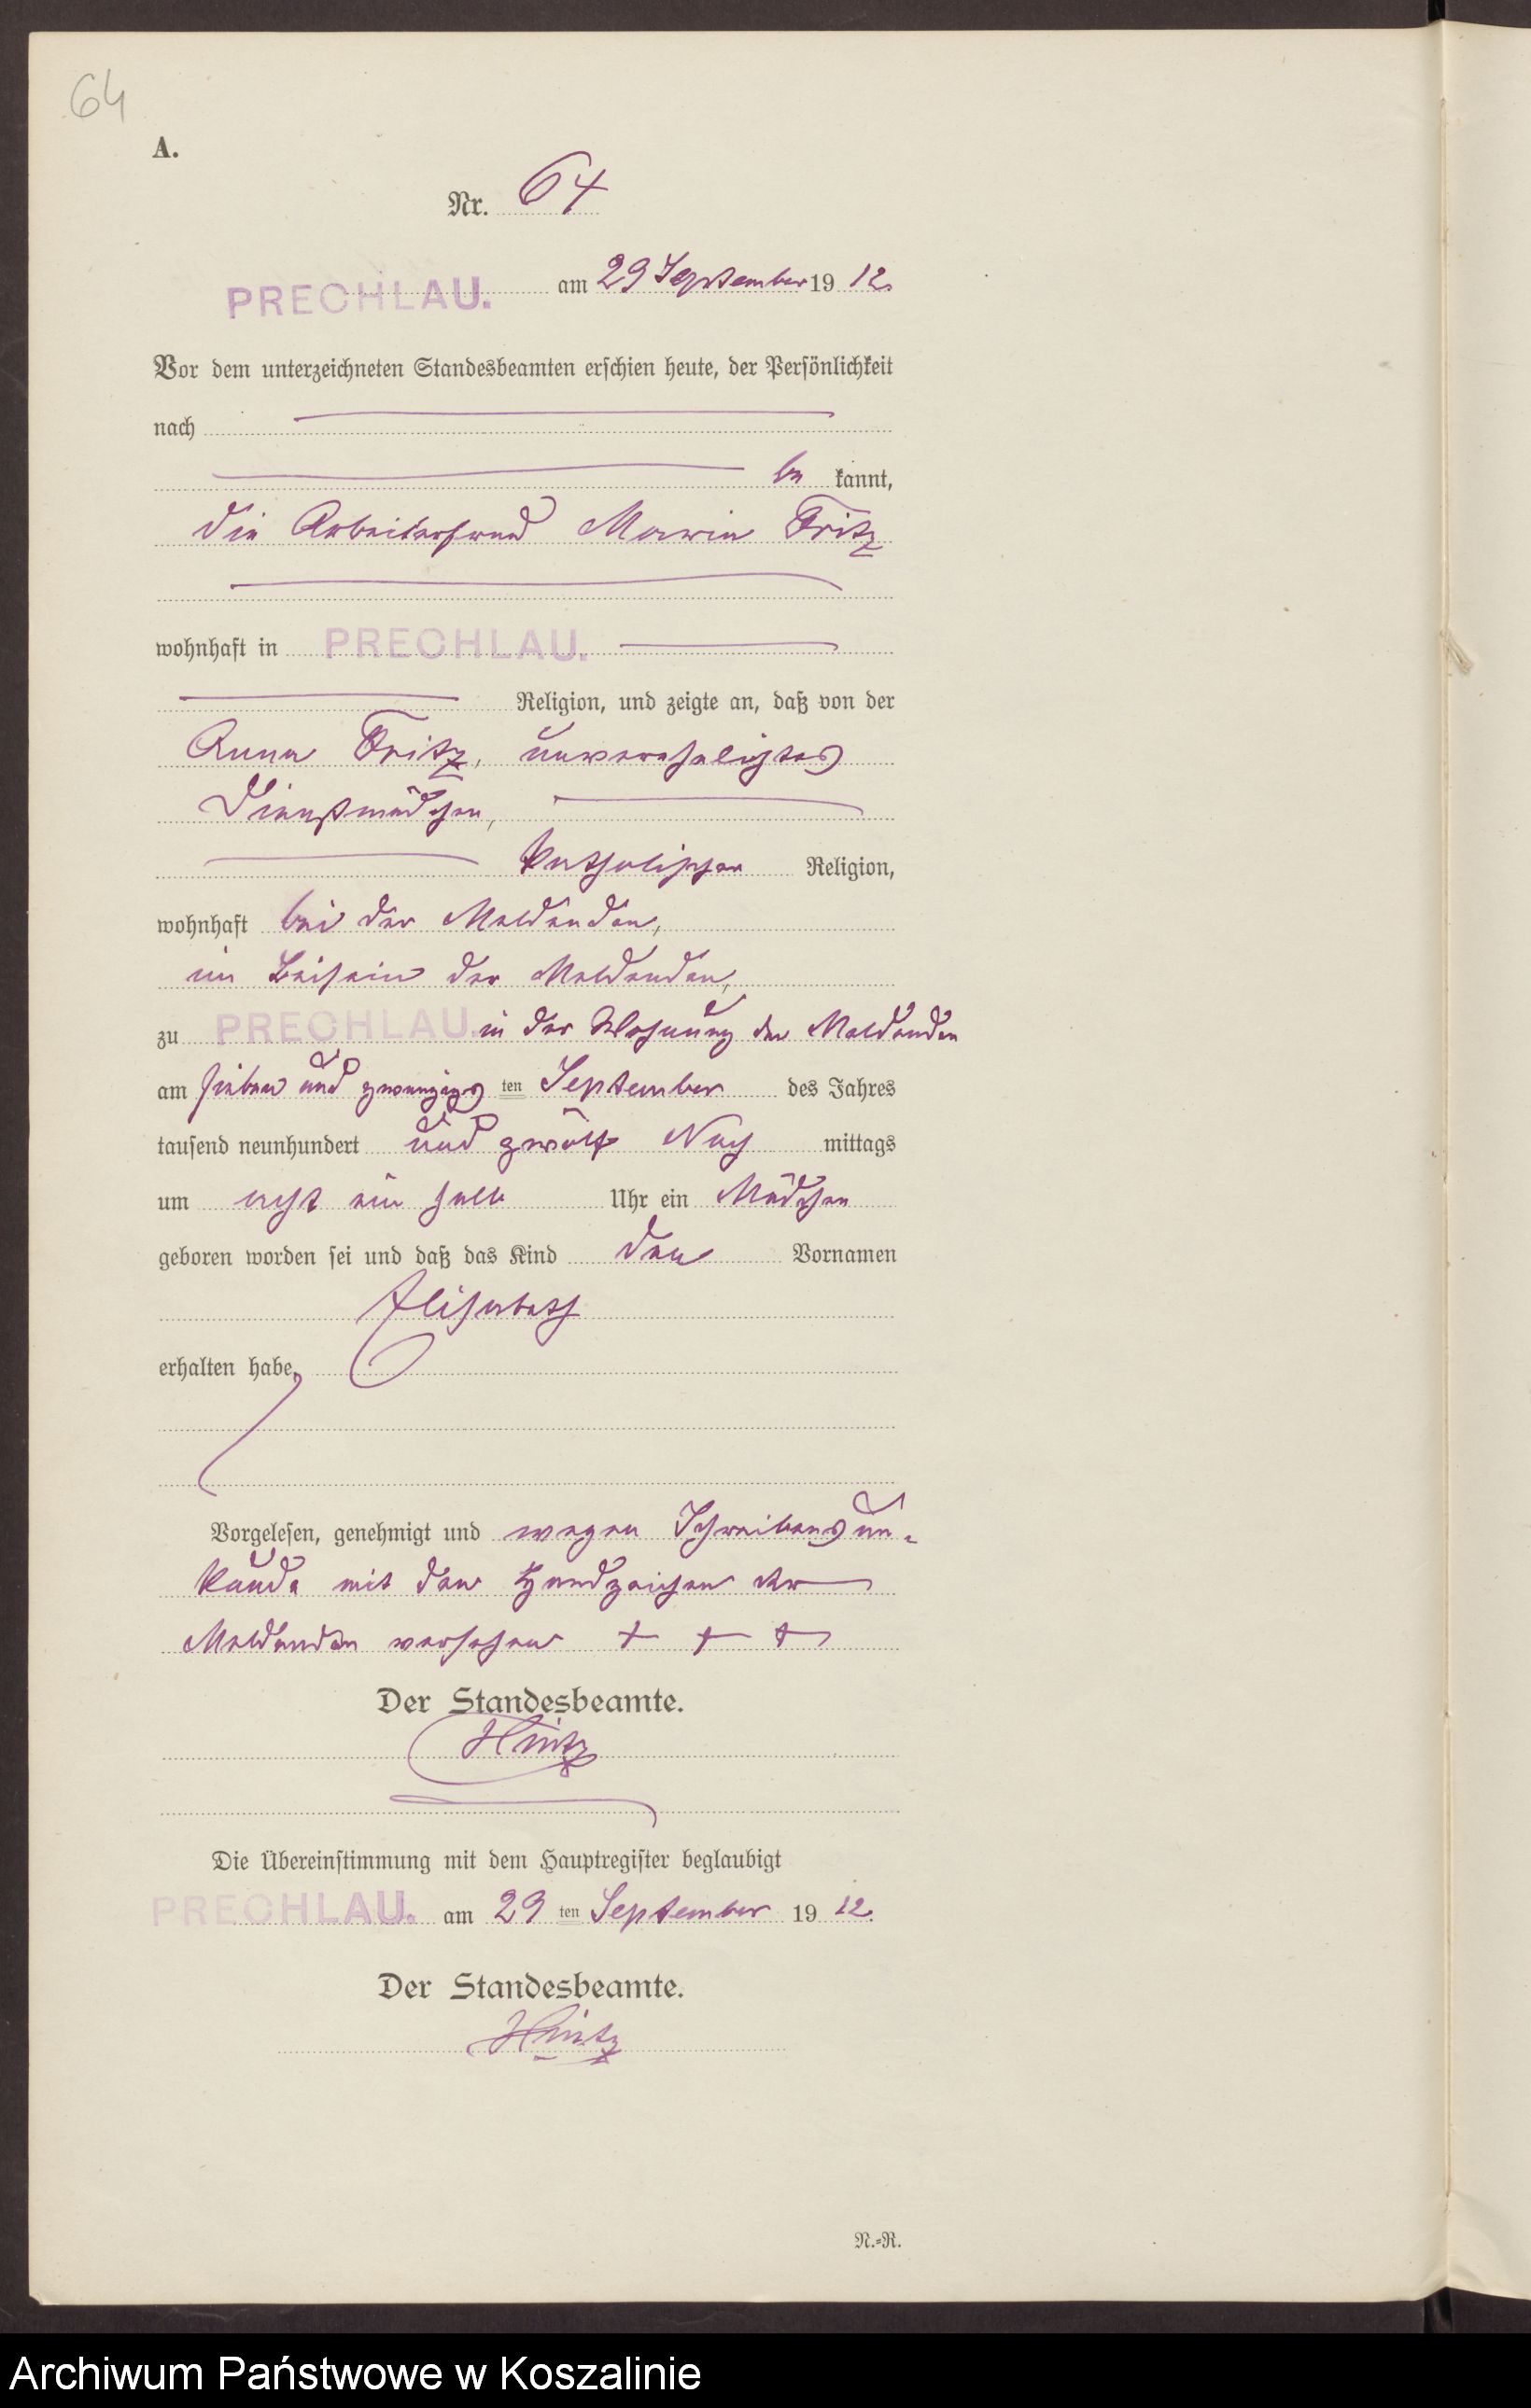 64
A.
Nr. 64
PRECHLAU. am 29 September 1912.
Vor dem unterzeichneten Standesbeamten erschien heute, der Persönlichkeit
nach
be kannt,
die Arbeiterfrau Marie Fritz
wohnhaft in PRECHLAU.
Religion, und zeigte an, daß von der
Anna Fritz, unverehelichtes
Dienstmädchen,
katholischer Religion,
wohnhaft bei der Meldenden,
im Beisein der Meldenden,
zu PRECHLAU. in der Wohnung der Meldenden
am sieben und zwanzigs ten September des Jahres
tausend neunhundert und zwölf Nach mittags
um acht ein halb Uhr ein Mädchen
geboren worden sei und daß das Kind den Vornamen
Elisabeth
erhalten habe.
Vorgelesen, genehmigt und wegen Schreibensun-
kunde mit den Handzeichen der
Meldenden versehen + + +
Der Standesbeamte.
Hintz
Die Übereinstimmung mit dem Hauptregister beglaubigt
PRECHLAU. am 29 ten September 1912.
Der Standesbeamte.
Hintz
N.-R.
Archiwum Państwowe w Koszalinie